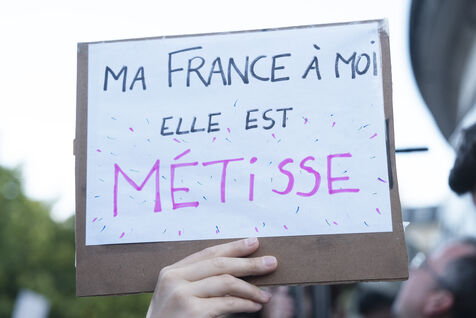 MA FRANCE À MOI
ELLE EST
MÉTISSE